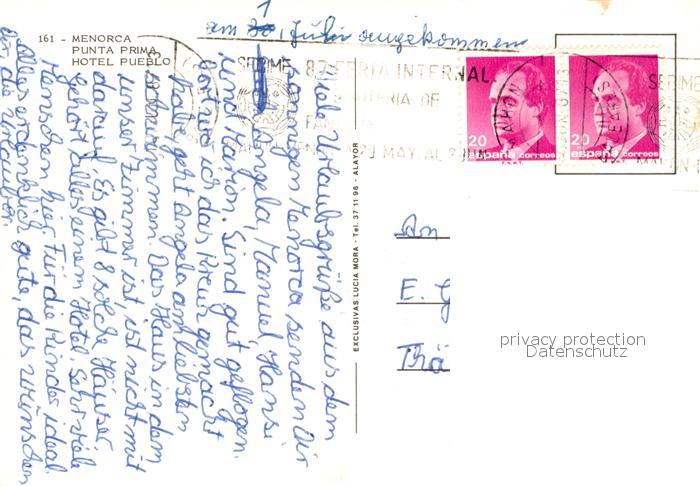 161 - MENORCA
PUNTA PRIMA
HOTEL PUEBLO
am 1. Juli angekommen
SERIME 87 FERIA INTERNAL
DE
MAY. AL
MAHON
BALEARES
SERIME
20
españa correos
20
españa correos
Viele Urlaubsgrüße aus dem
sonnigen Menorca senden Dir
Angela, Manuel, Hansi
und Marion. Sind gut geflogen.
wo ich das Kreuz gemacht
habe geht Angela am liebsten
schwimmen. Das Haus in dem
unser Zimmer ist, ist nicht mit
darauf. Es gibt 8 solche Häuser
gehört alles einem Hotel. Sehr viele
Menschen hier. Für die Kinder ideal.
Alles erdenklich gute, das wünschen
dir die Urlauber.
EXCLUSIVAS LUCIA MORA - Tel. 37 11 96 - ALAYOR
An
E. G
Thä
privacy protection
Datenschutz